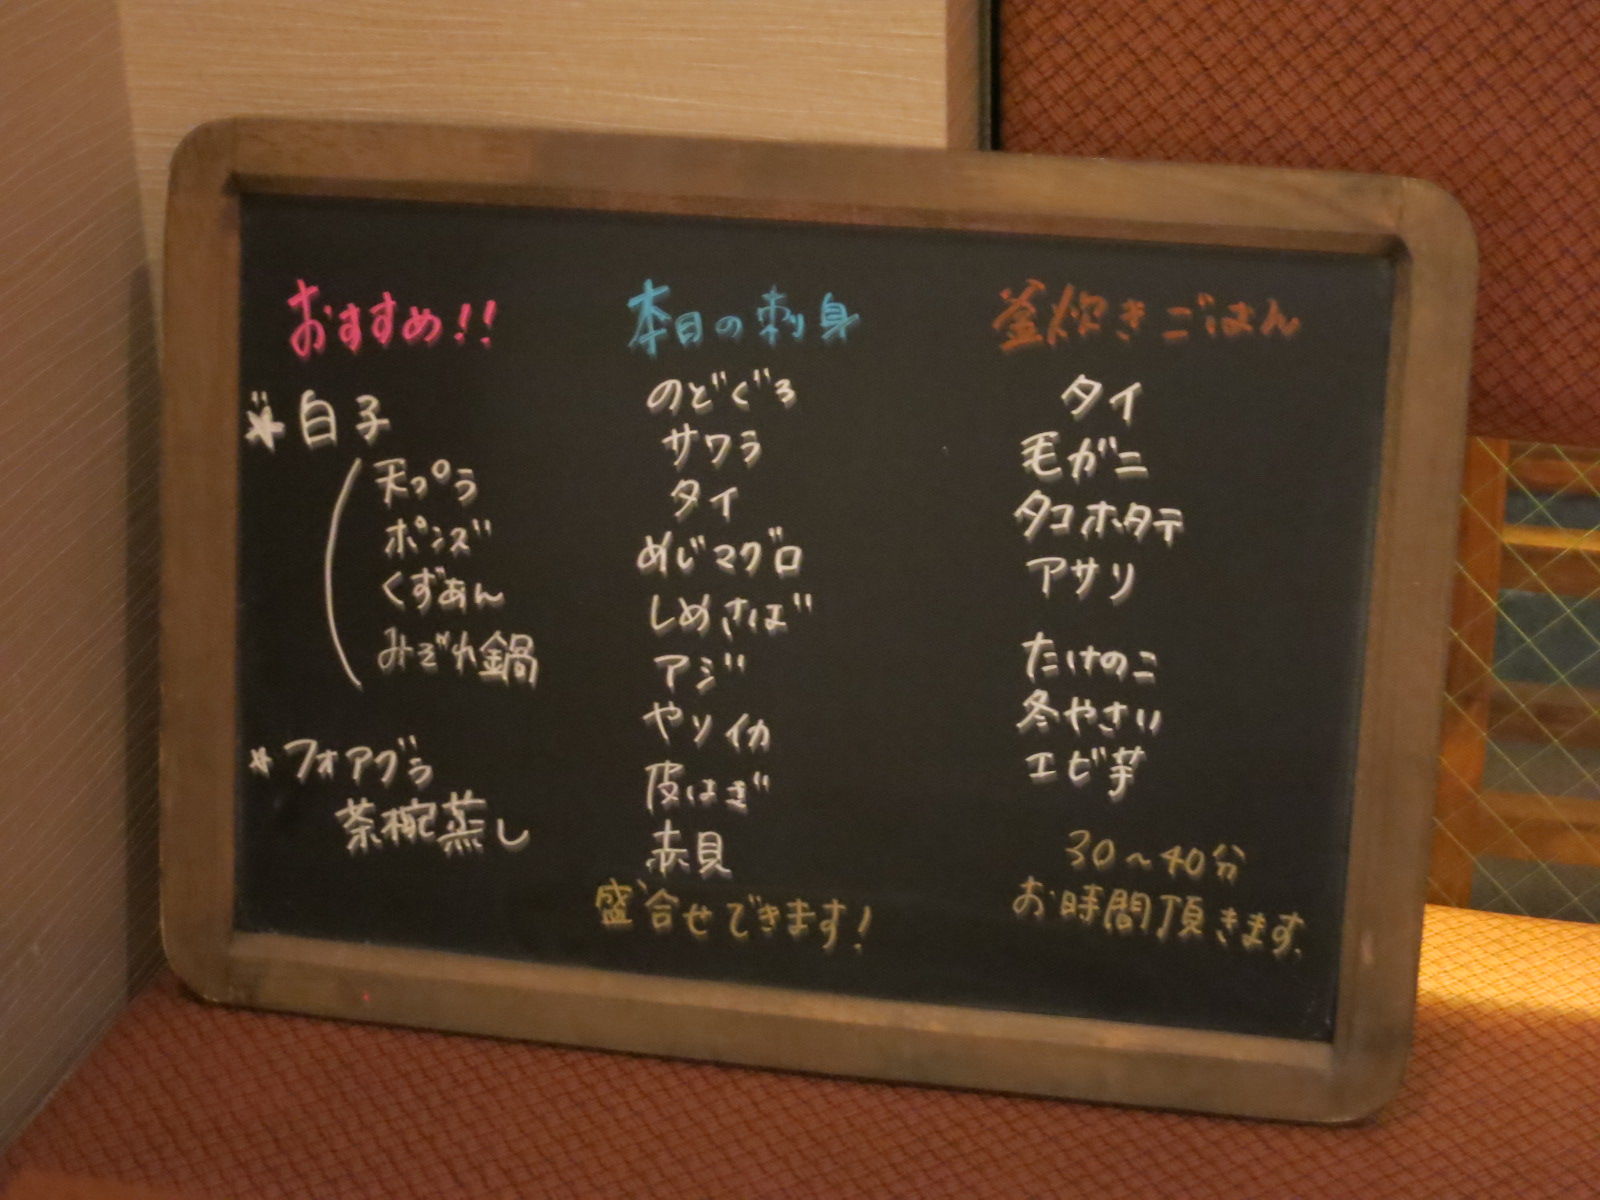 おすすめ!!
*白子
天っぷら
ポンズ
くずあん
みぞれ鍋
*フォアグラ
茶椀蒸し
本日の刺身
のどぐろ
サワラ
タイ
めじマグロ
しめさば
アジ
やりイカ
皮はぎ
赤貝
盛合せできます!
釜炊きごはん
タイ
毛がニ
タコホタテ
アサリ
たけのこ
冬やさい
エビ芋
30〜40分
お時間頂きます.